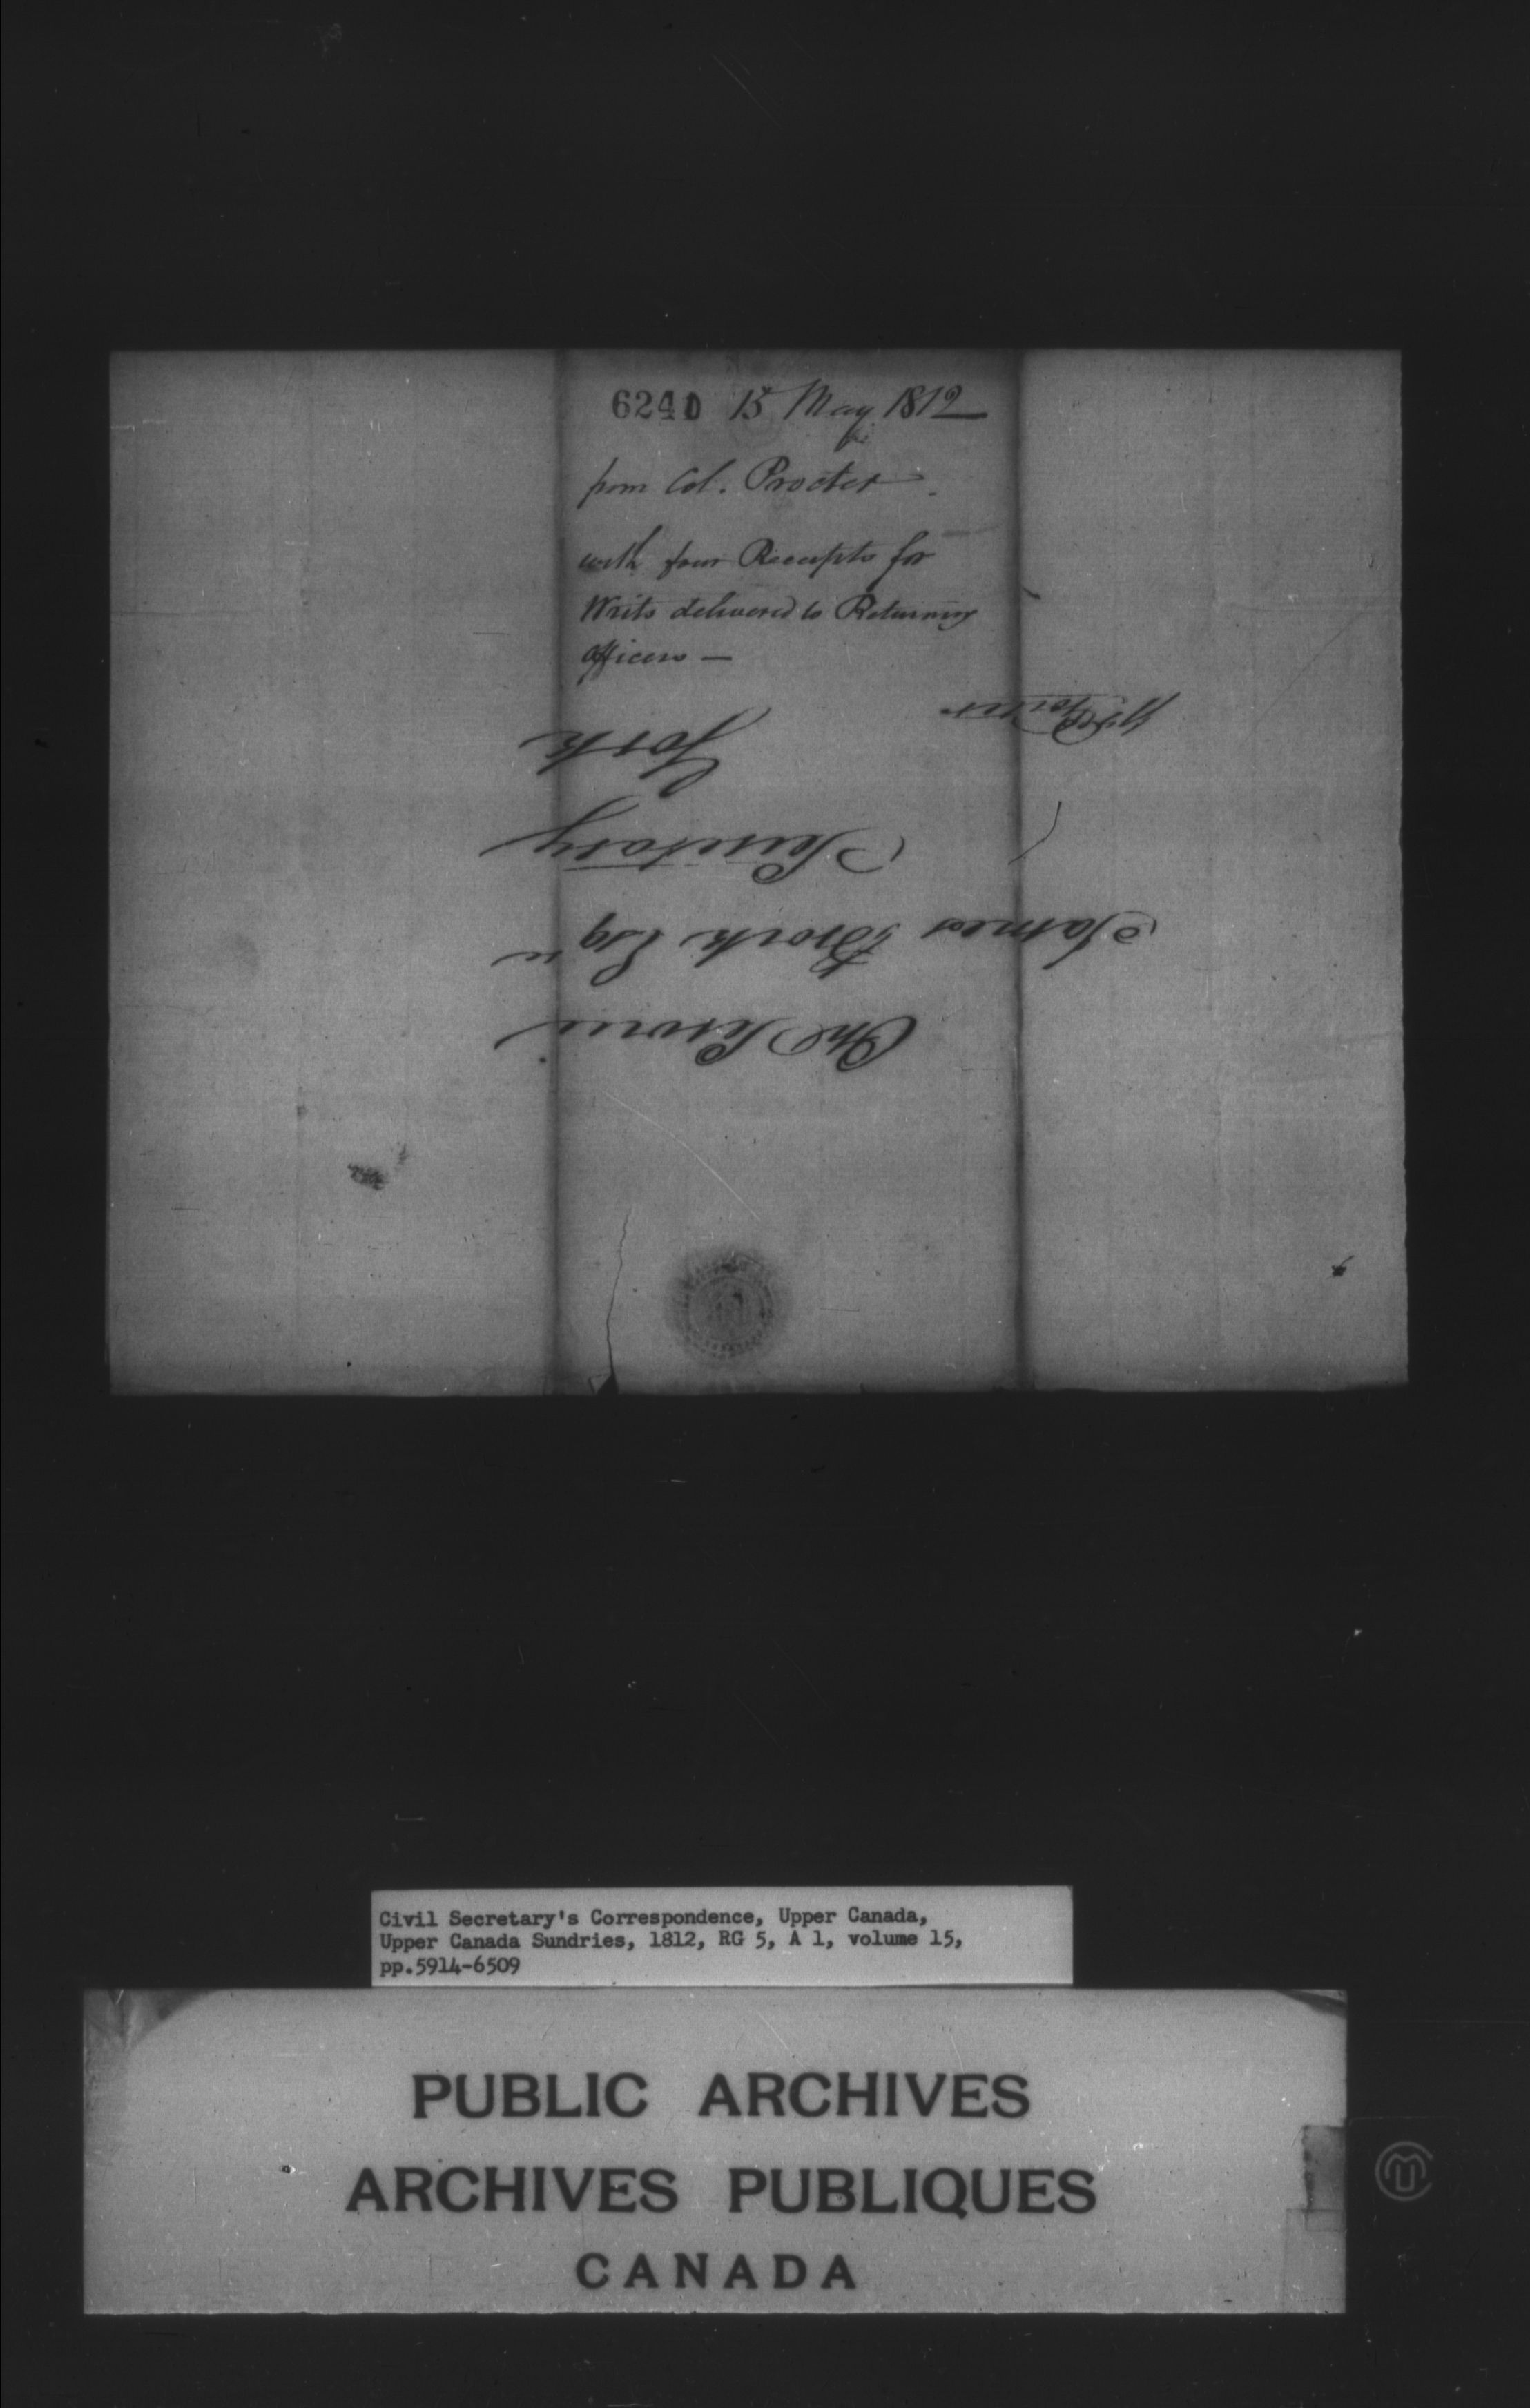 6240 15 May 1812
from Col. Procter
with four Receipts for
Writs delivered to Returning
Officers —
On Service
James Brock Esqr
Secretary
York
Civil Secretary's Correspondence, Upper Canada,
Upper Canada Sundries, 1812, RG 5, A 1, volume 15,
pp.5914-6509
PUBLIC ARCHIVES
ARCHIVES PUBLIQUES
CANADA